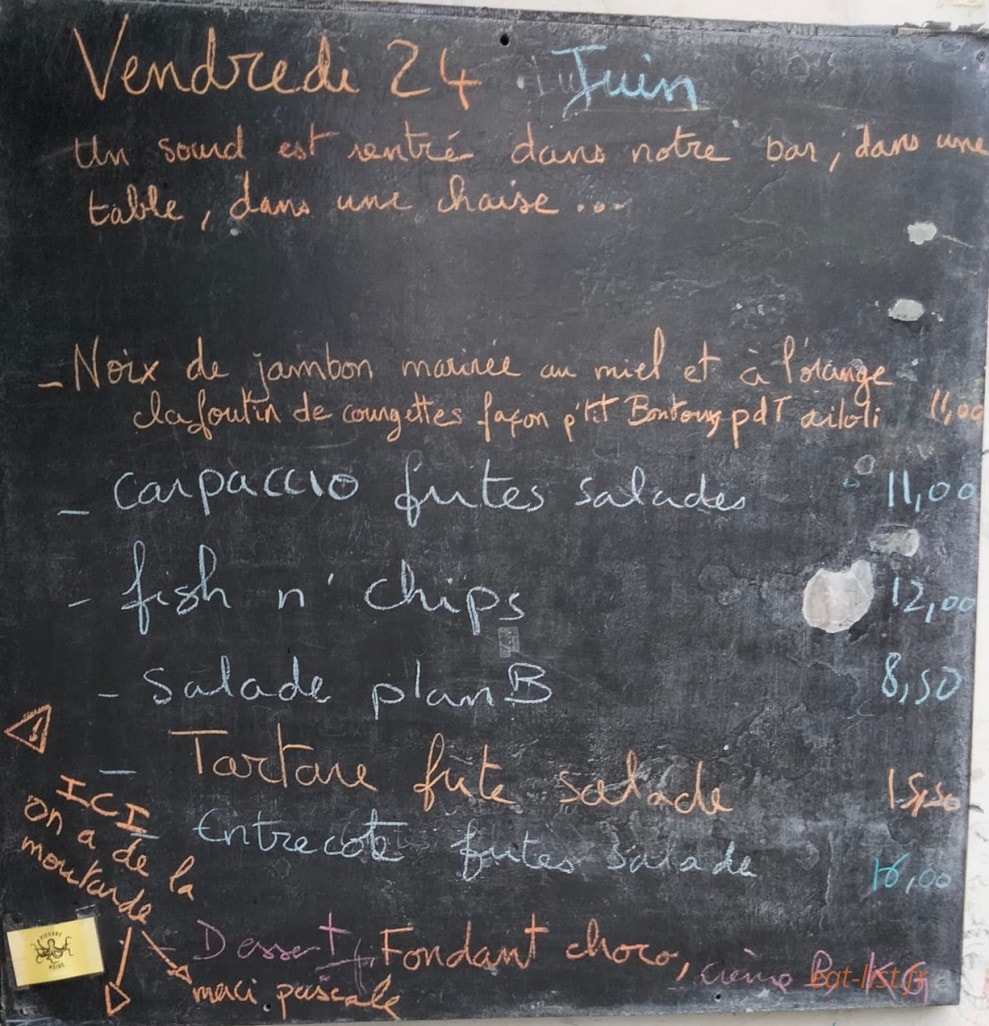 Vendredi 24 Juin
Un sourd est rentré dans notre bar, dans une
table, dans une chaise ...
- Noix de jambon marinée au miel et à l'orange
clafoutin de courgettes façon p'tit Bontoug pdT aïloli 11,00
- Carpaccio frites salades 11,00
- fish n' chips 12,00
- Salade plan B 8,50
- Tartare frite salade 15,50
- Entrecote frites salade 16,00
⚠ ICI
on a de la
moutarde
- Dessert, Fondant choco, crème B, K G
merci pascale
eat-list.fr